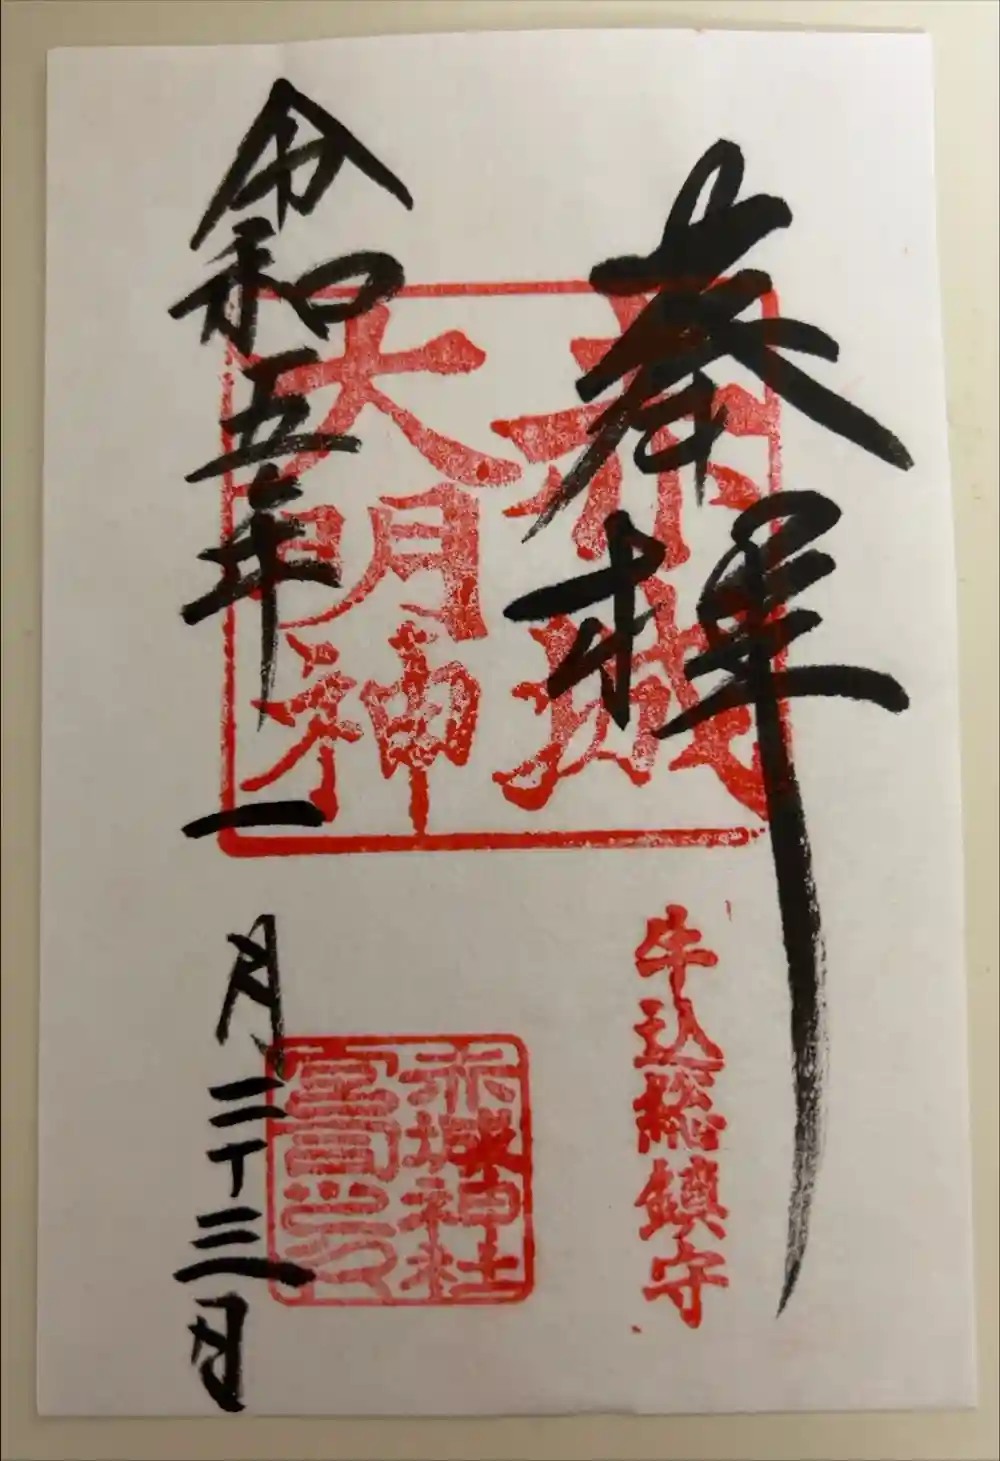 奉拝
赤城
大明神
牛込総鎮守
赤城神社
宮司之印
令和五年一月二十三日